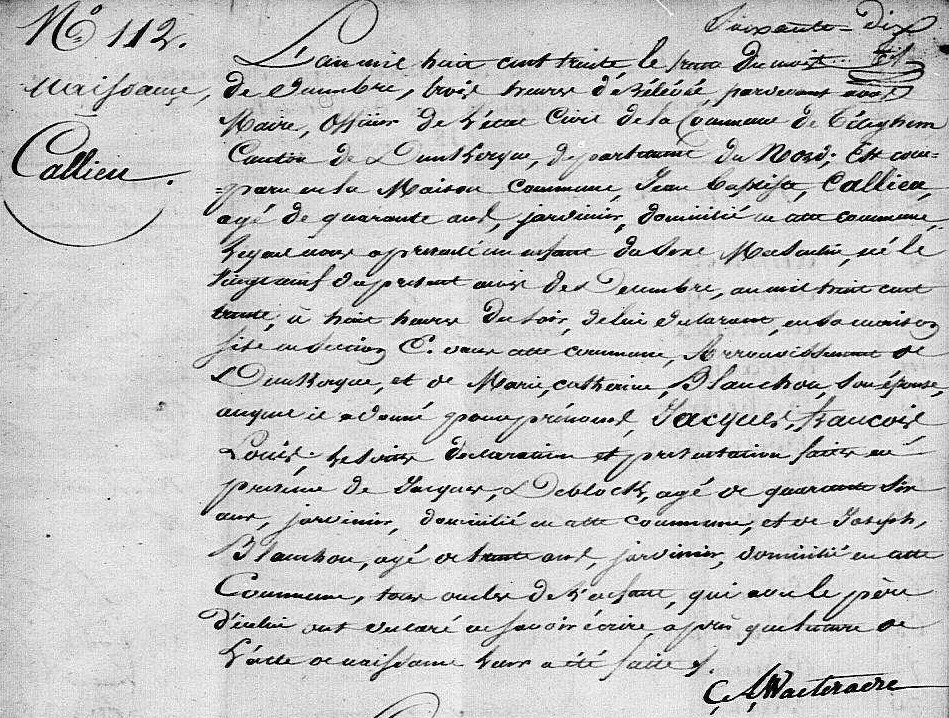 Soixante-dix
N° 112.
L'an mil huit cent trente, le trente du mois
Naissance,
de Décembre, trois heures de Rélévée, pardevant nous
Maire, Officier de l'état Civil de la Commune de Téteghem
Callieu.
Canton de Dunkerque, département du Nord; Est com-
=paru en la Maison commune, Jean Baptiste, Callieu,
agé de quarante ans, jardinier, domicilié en cette commune,
Lequel nous a présenté un enfant du sexe Masculin, né le
vingt neuf du présent mois de Décembre, an mil huit cent
trente, à huit heures du soir, de lui déclarant, en sa maison
sise en section C. dans cette commune, Arrondissement de
Dunkerque, et de Marie, catherine, Blanchou, son épouse,
auquel il a donné pour prénoms, Jacques, francois
Louis; Lesdites déclaration et présentation faites en
présence de Jacques, Deblock, agé de quarante six
ans, jardinier, domicilié en cette commune, et de Joseph,
Blanchou, agé de trente ans, jardinier, domicilié en cette
Commune, tous oncles de l'enfant, qui avec le père
d'icelui ont déclaré ne savoir écrire, après que lecture de
L'acte de naissance leur a été faite.